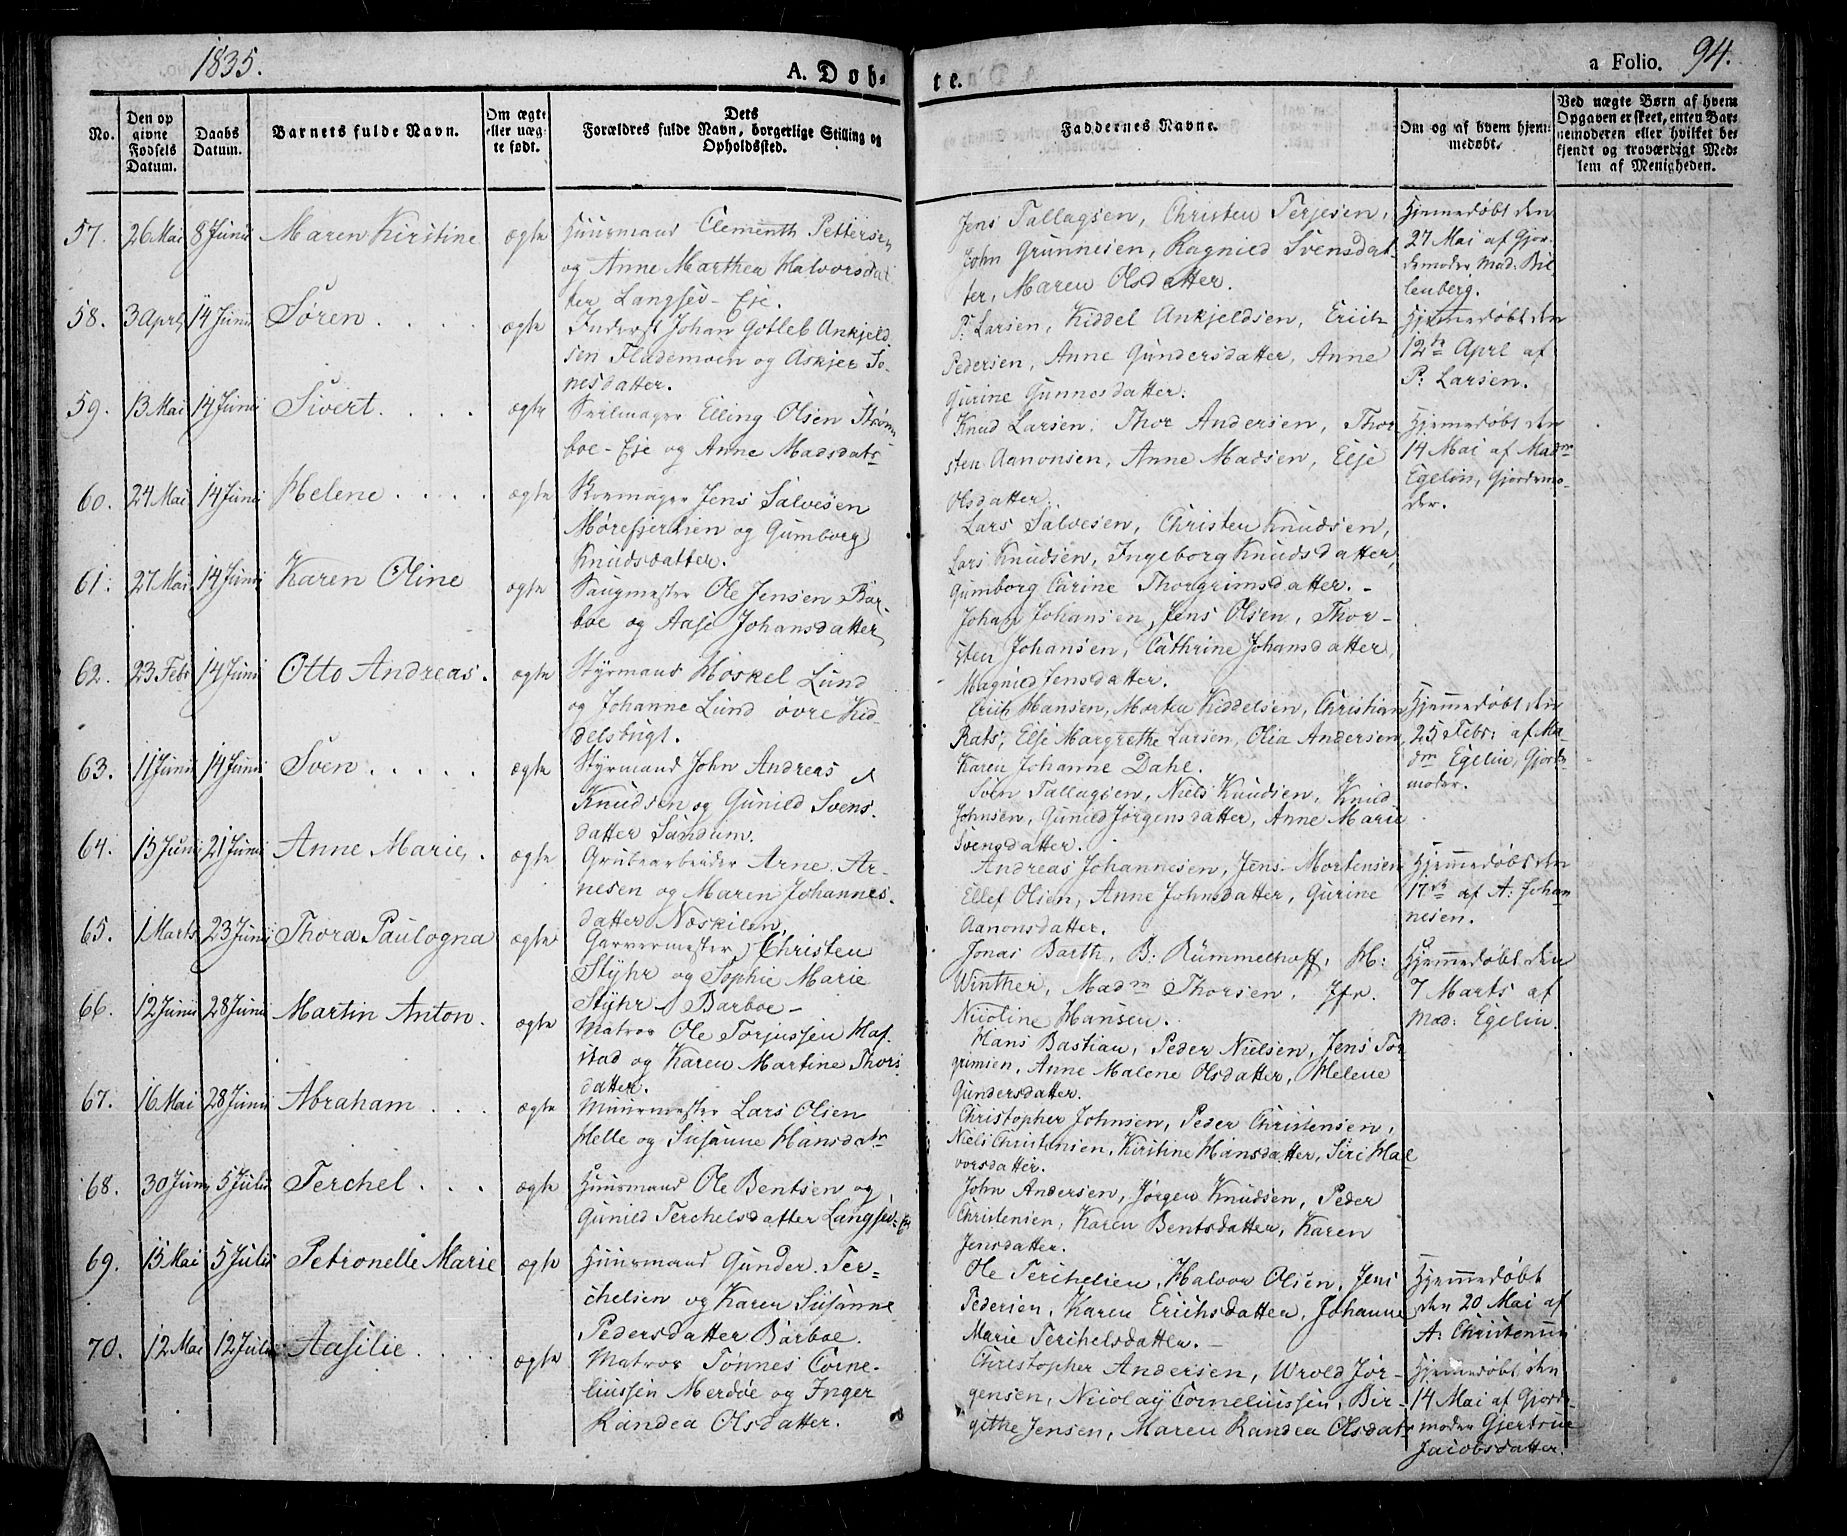 1835.
A. Døb-
te.
a Folio. 94.
No.
Den op
givne
Fødsels
Datum.
Daabs
Datum.
Barnets fulde Navn.
Om ægte
eller uæg
te født.
Dets
Forældres fulde Navn, borgerlige Stilling og
Opholdssted.
Faddernes Navne.
Om og af hvem hjem-
medøbt.
Ved uægte Børn af hvem
Opgaven er skeet, enten Bar-
nemoderen eller hvilket be-
kjendt og troværdigt Med-
lem af Menigheden.
57. 26 Mai 8 Junii Maren Kirstine ægte
Huusmand Clementh Pettersen
og Anne Marthea Halvorsdat
ter Langsev-Eje.
Jens Tallagsen, Christen Terjesen,
John Grunnesen, Ragnild Svensdat-
ter, Maren Olsdatter.
Hjemmedøbt den
27 Mai af Gjor-
demoder Mad: Bil-
lenberg.
58. 3 April 14 Junii Søren ægte
Inderst Johan Gotleb Ankjeld
sen Flademoen og Askjer Jo-
nesdatter.
P. Larsen, Kiddel Ankjeldsen, Erich
Pedersen, Anne Gundersdatter, Anne
Gurine Gunnesdatter.
Hjemmedøbt den
12te April af
P: Larsen.
59. 13 Mai 14 Junii Sivert. ægte
Seilmager Elling Olsen Strøm
boe-Eje og Anne Madsdatr
Knud Larsen, Thor Andersen, Thor-
sten Aanonsen, Anne Madsen, Elje
Olsdatter.
Hjemmedøbt den
14 Mai af Madm
Egelin, Gjordemo-
der.
60. 24 Mai 14 Junii Helene ægte
Skoemager Jens Salvesen
Mørefjerhen og Gumborg
Knudsdatter.
Lars Salvesen, Christen Knudsen,
Lars Knudsen, Ingeborg Knudsdatter,
Gumborg Carine Thorgrimsdatter.-
61. 27 Mai 14 Junii Karen Oline ægte
Saugmester Ole Jensen Bar-
boe og Aase Johansdatter
Johan Johansen, Jens Olsen, Thor-
sten Johansen, Cathrine Johansdatter,
Magnild Jensdatter.
62. 23 Febr 14 Junii Otto Andreas. ægte
Styrmand Høskel Lund
og Johanne Lund øvre Kid-
delsbugt.
Erich Hansen, Morten Kiddelsen, Christian
Rats, Elje Margrethe Larsen, Olia Andersen,
Karen Johanne Dahl.
Hjemmedøbt den
25 Febr: af Ma-
dm Egelin, Gjorde-
moder.
63. 11 Junii 14 Junii Sven ægte
Styrmand John Andreas
Knudsen og Gunild Svens-
datter Sandum.
Sven Tallagsen, Niels Knudsen, Knud
Johnsen, Gunild Jørgensdatter, Anne Marie
Svensdatter.
64. 15 Junii 21 Junii Anne Marie. ægte
Grubearbeider Arne Ar-
nesen og Maren Johannes-
datter Næskilen.
Andreas Johannesen, Jens Mortensen
Ellef Olsen, Anne Johnsdatter, Gurine
Aanonsdatter.
Hjemmedøbt den
17de af A: Johan
nesen.
65. 1 Marts 23 Junii Thora Paulogna ægte
Garvermester Christen
Styhr og Sophie Marie
Styhr Barboe-
Jonas Barth, B. Rummelhoff, H:
Winther, Madm Thorsen, Jfr.
Nicoline Hansen.
Hjemmedøbt den
7 Marts af
Mad: Egelin.
66. 12 Junii 28 Junii Martin Anton. ægte
Matros Ole Torjussen Haf-
stad og Karen Martine Thors-
datter.
Hans Bastian, Peder Nielsen, Jens Tor-
grimsen, Anne Malene Olsdatter, Helene
Gundersdatter.
67. 16 Mai 28 Junii Abraham ægte
Muurmester Lars Olsen
Helle og Susanne Hansdatr
Christopher Johnsen, Peder Christensen,
Niels Christensen, Kirstine Hansdatter, Siri Hal
vorsdatter.
68. 30 Junii 5 Julii Terchel ægte
Huusmand Ole Bentsen og
Gunild Terchelsdatter Langsev-E
John Andersen, Jørgen Knudsen, Peder
Christensen, Karen Bentsdatter, Karen
Jensdatter.
69. 15 Mai 5 Julii Petronelle Marie ægte
Huusmand Gunder Ter-
chelsen og Karen Susanne
Pedersdatter Barboe.
Ole Terchelsen, Halvor Olsen, Jens
Pedersen, Karen Erichsdatter, Johanne
Marie Terchelsdatter.-
Hjemmedøbt
den 20 Mai af
A: Christensen
70. 12 Mai 12 Julii Aasilie ægte
Matros Tønnes Corne-
liussen Merdøe og Inger
Randea Olsdatter.
Christopher Andersen, Wrold Jør-
gensen, Nicolay Corneliussen, Bir-
githe Jensen, Maren Randea Olsdatr
Hjemmedøbt den
14 Mai af Gjorde-
moder Gjertrue
Jacobsdatter.